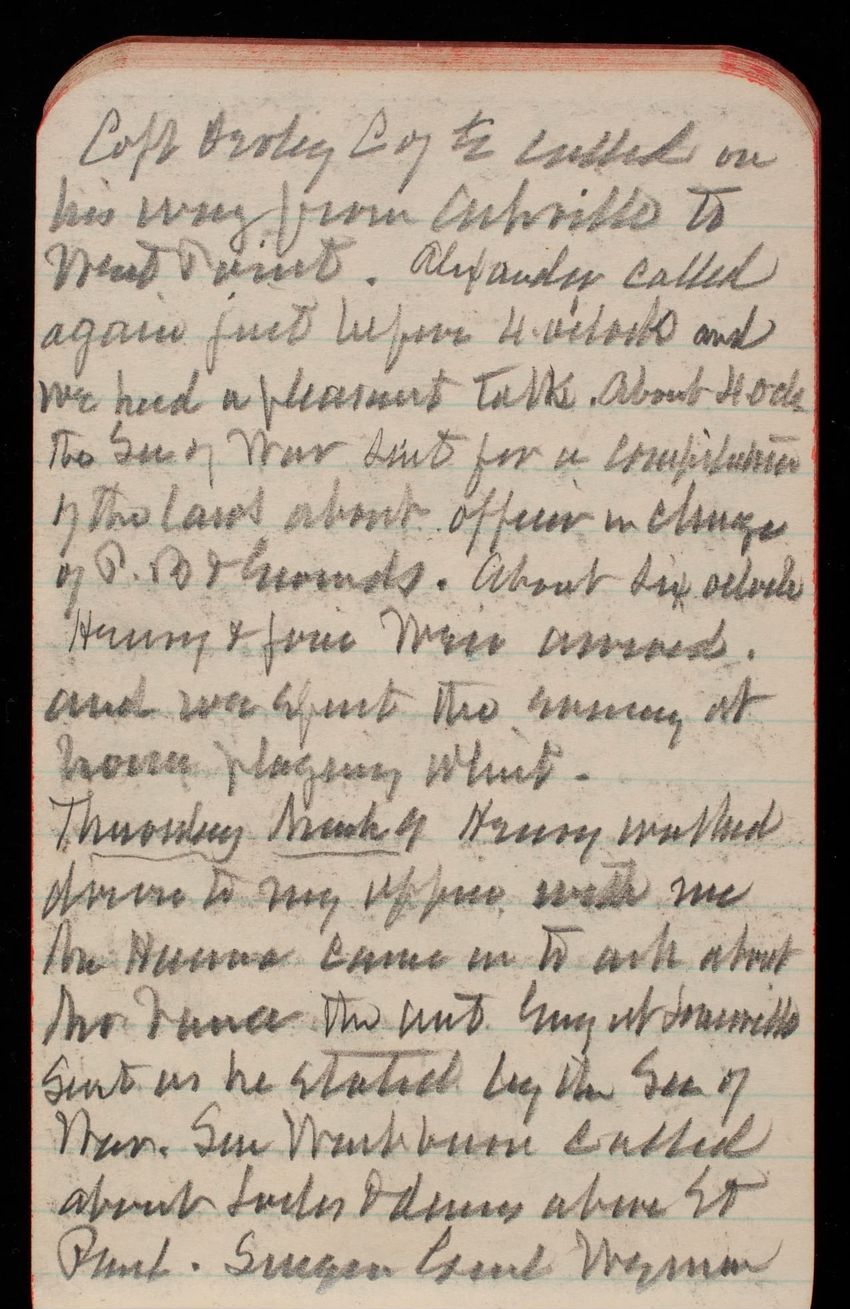 Capt Derby C of E called on
his way from Ashville to
West Point. Alexander called
again just before 4 oclock and
we had a pleasant talk. About 4 ock
the Sec of War sent for a compilation
of the laws about officer in charge
of P. B & Grounds. About six oclock
Henry & Weir arrived.
and we spent the evening at
home playing whist.
Thursday March 9 Henry walked
down to my office with me
came in to ask about
the asst Eng at Louisville
sent as he stated by the Sec of
War. Sen Washburn called
about locks & dams above St
Paul. Surgeon Wyman